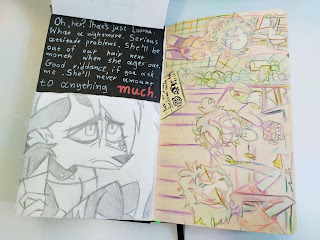 Oh, her? That's just Loona.
What a nightmare. Serious
attitude problems. She'll be
out of our hair next
month when she ages out.
Good riddance, if you ask
me. She'll never amount
to anything much.